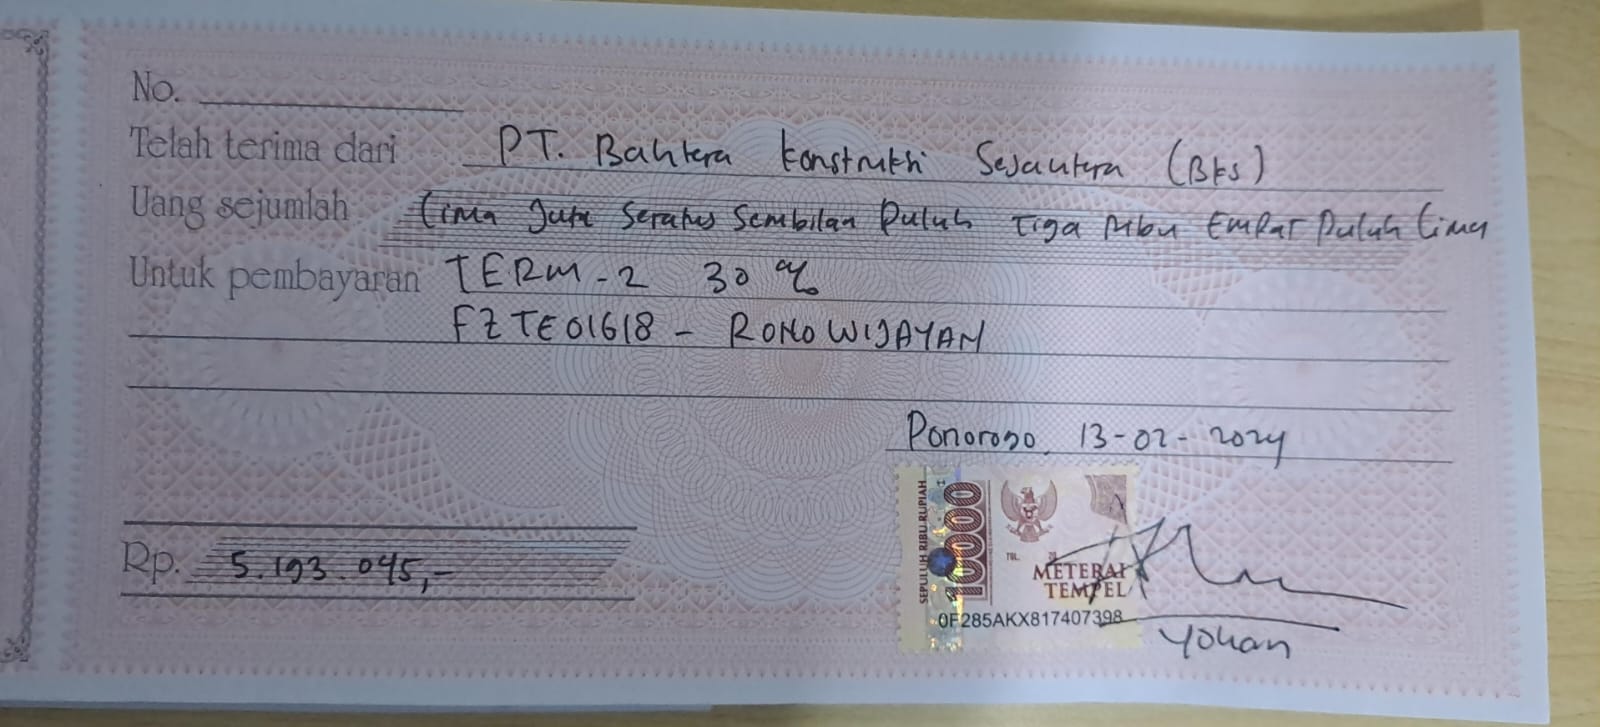 No.
Telah terima dari PT. Bahtera Konstruksi Sejahtera (BKS)
Uang sejumlah Lima Juta Seratus Sembilan Puluh Tiga Ribu Empat Puluh Lima
Untuk pembayaran TERM-2 30%
FZTE01618 - RONOWIJAYAN
Ponorogo, 13-02-2024
Rp. 5.193.045,-
SEPULUH RIBU RUPIAH
10000
TGL. 20
METERAI
TEMPEL
0F285AKX817407398
Yohan